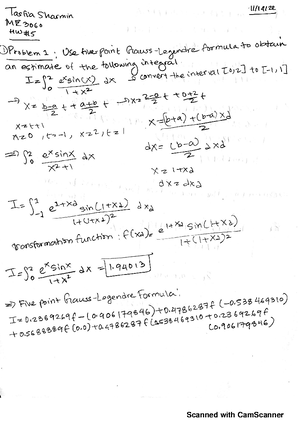 Tasfia Sharmin 11/14/22
ME 3060
HW #5
① Problem 1: Use five point Gauss-Legendre formula to obtain
an estimate of the following integral
I=∫₀² eˣsin(x)/1+x² dx convert the interval [0,2] to [-1,1]
→ x = b-a/2 t + a+b/2 → x = 2-0/2 t + 0+2/2
x = t+1
x=0, t=-1, x=2, t=1
x = (b+a) + (b-a)xd/2
⇒ ∫₀² eˣsinx/x²+1 dx
dx = (b-a)/2 dxd
x = 1+xd
dx = dxd
I = ∫₋₁¹ e^1+xd sin(1+xd)/1+(1+xd)² dxd
transformation function: f(xd) = e^1+xd sin(1+xd)/1+(1+xd)²
I = ∫₀² eˣsinx/1+x² dx = 1.94013
⇒ Five point Gauss-Legendre Formula:
I = 0.2369269f -(0.906179846) + 0.4786287f (-0.538469310)
+0.5688889f (0.0) + 0.4786287f (0.538469310 + 0.2369269f
(0.906179846)
Scanned with CamScanner